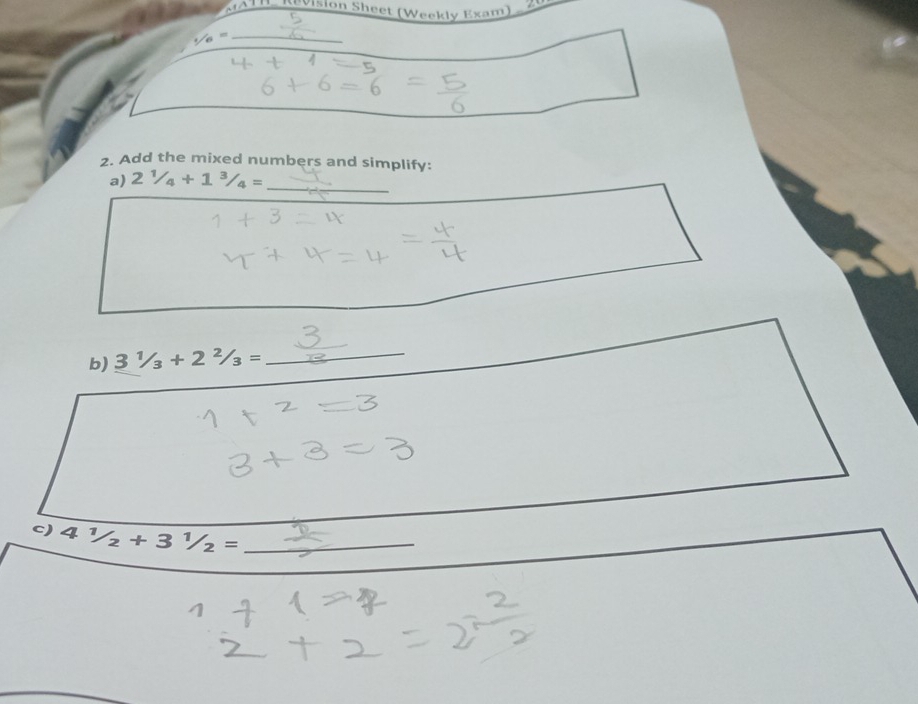 MATH Revision Sheet (Weekly Exam)
1/6 = 5/6
4 + 1 = 5
6 + 6 = 6 = 5/6
2. Add the mixed numbers and simplify:
a) 2 1/4 + 1 3/4 = 4/4
1 + 3 = 4
4 + 4 = 4 = 4/4
b) 3 1/3 + 2 2/3 = 3/3
1 + 2 = 3
3 + 3 = 3
c) 4 1/2 + 3 1/2 = 2/2
1 + 1 =
2 + 2 = 2 = 2/2